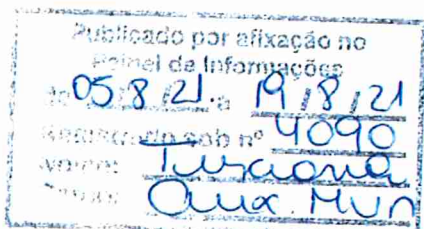 Publicado por afixação no
Painel de Informações
de 05/8/21. a 19/8/21
Registrado sob nº 4090
Aux. Mun